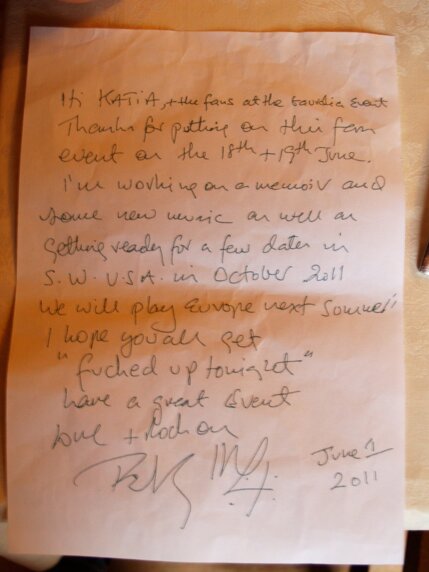 Hi KATIA, + the fans at the Event
Thanks for putting on this fan
event on the 18th + 19th June.
I'm working on a memoir and
some new music as well as
getting ready for a few dates in
S.W. U.S.A. in October 2011
We will play Europe next Sommer
I hope you all get
"fucked up tonight"
have a great Event
Love + Rock on
June 1
2011